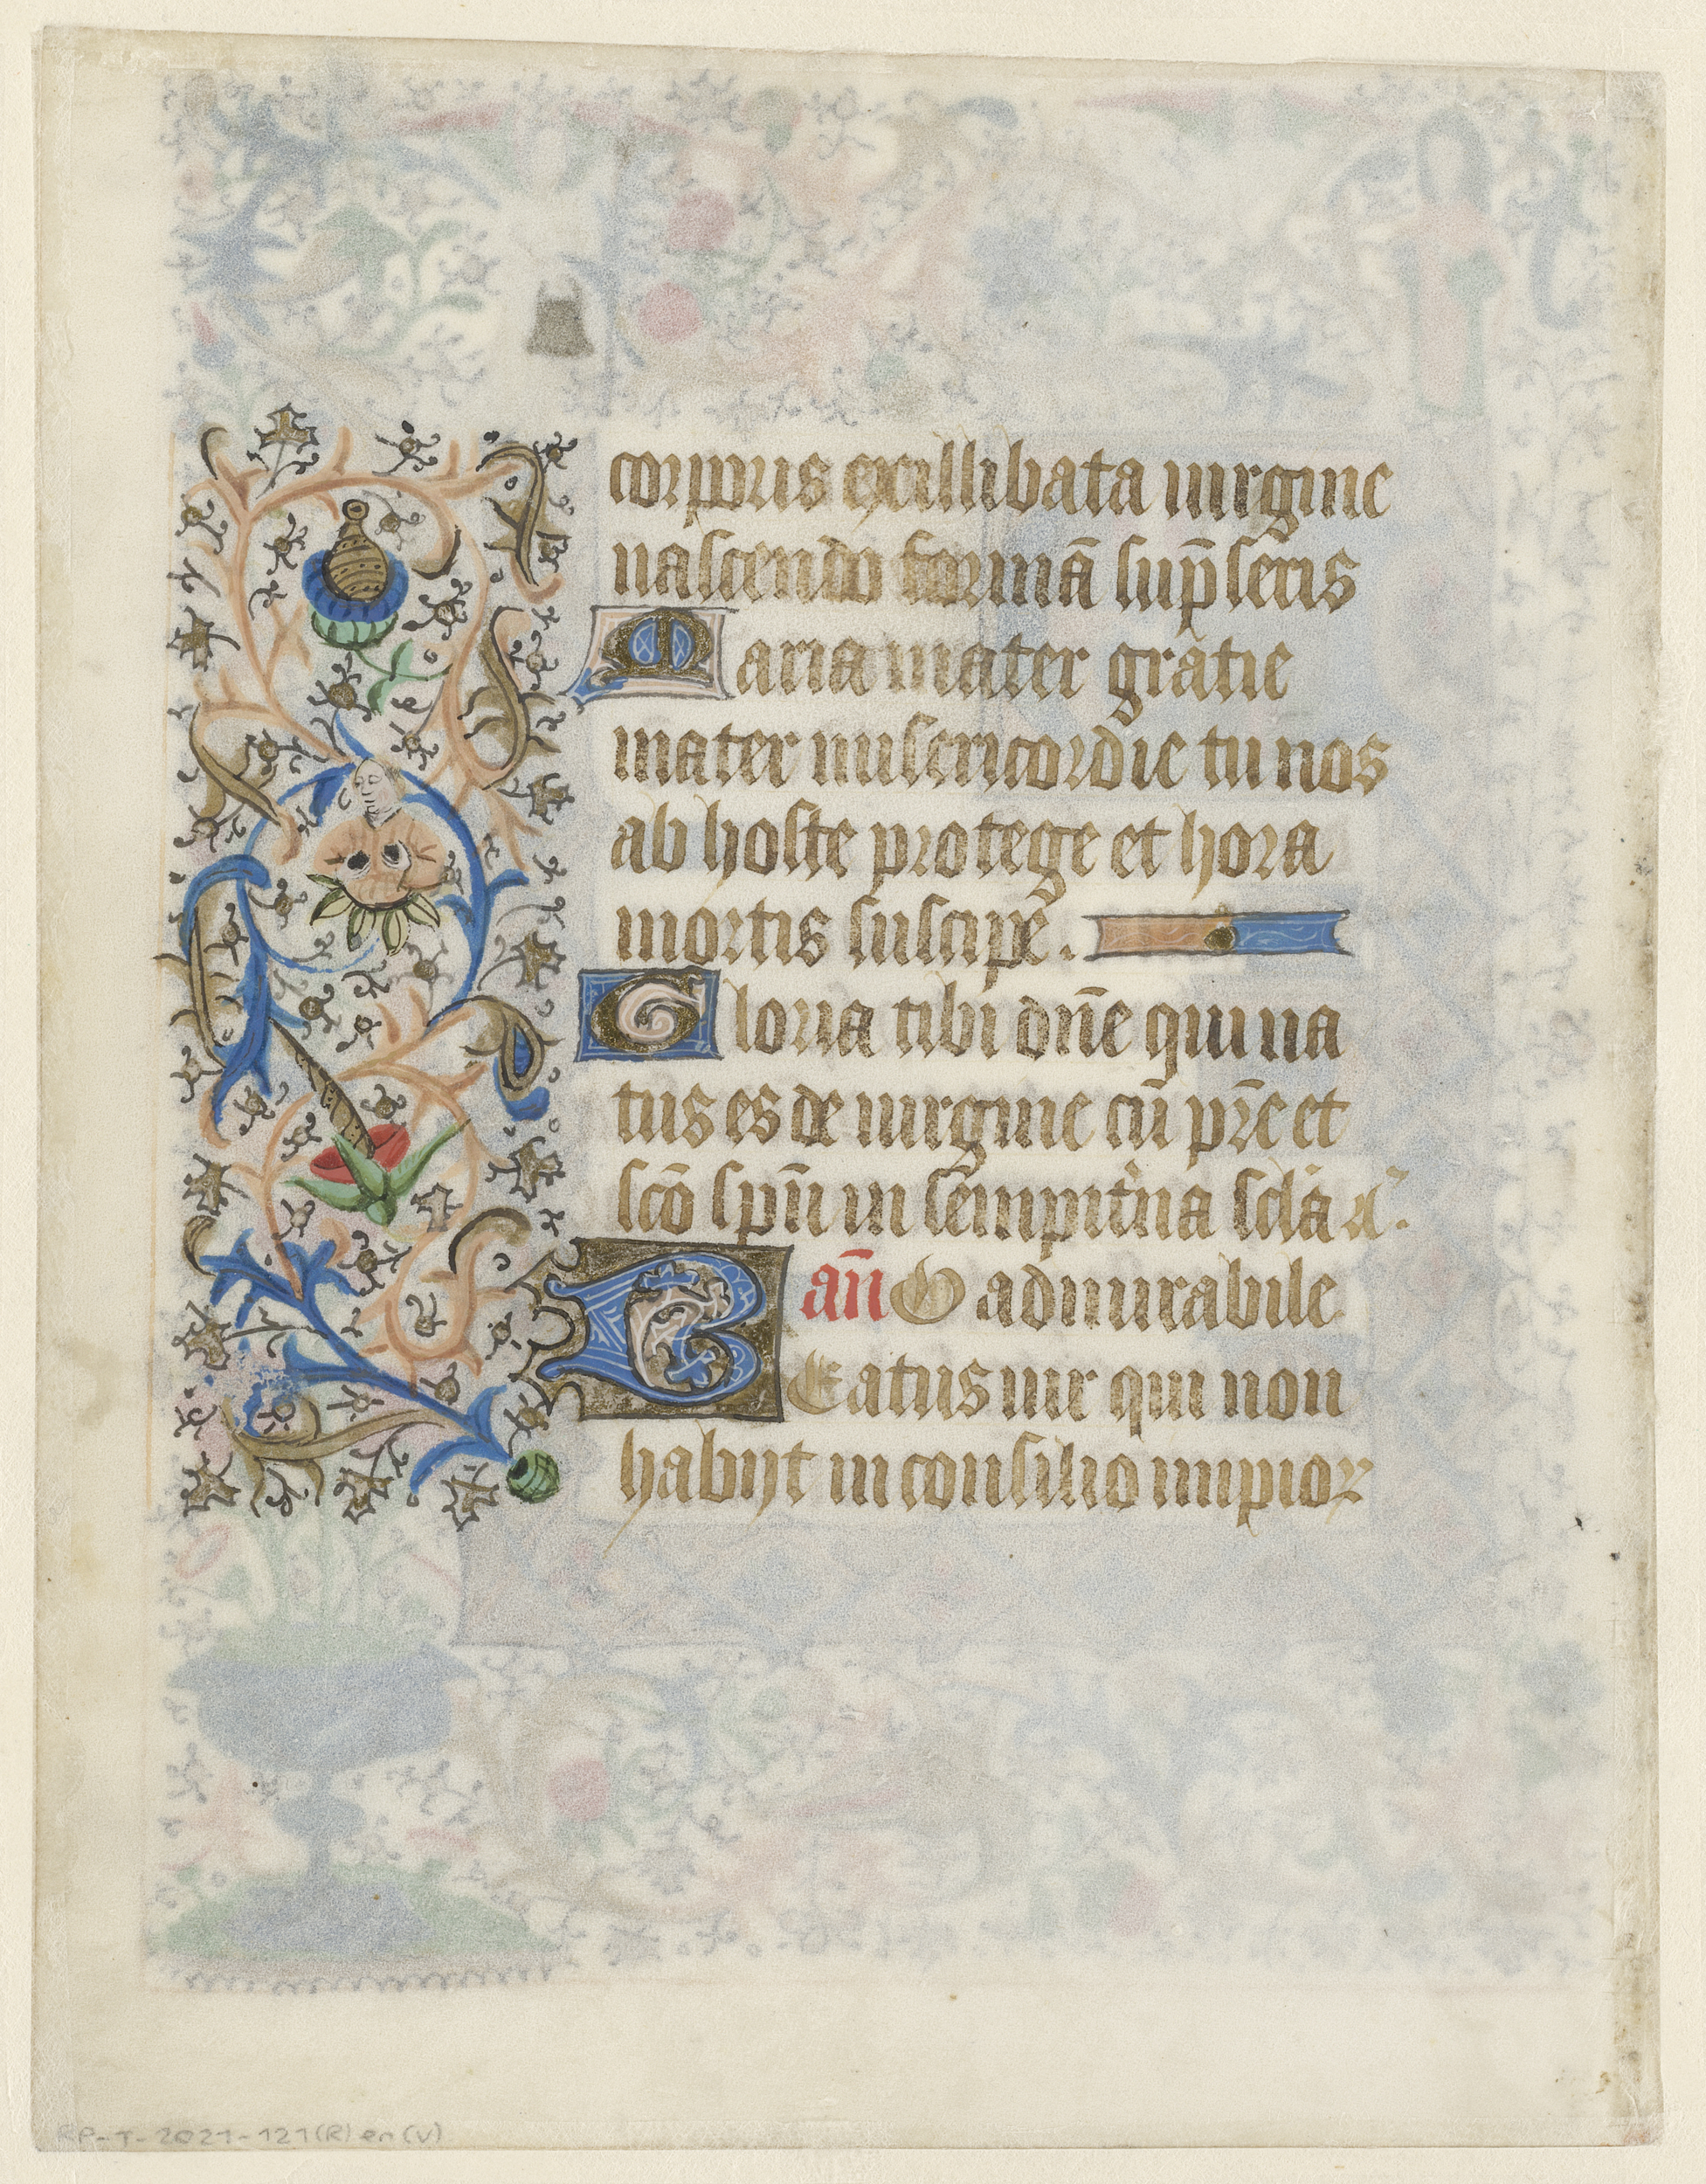 corpus exillibata uirgine
nascendo formā sup̄seris
Maria mater gratie
mater misericordie tu nos
ab hoste protege et hora
mortis suscipē.
Gloria tibi dn̄e qui na
tus es de uirgine cū pr̄e et
scō spū in sempit̀na scl̄a a⁊.
an̄ O admirabile
BEatus uir qui non
habijt in consilio impioꝝ
RP-T-2021-121(R) en (V)